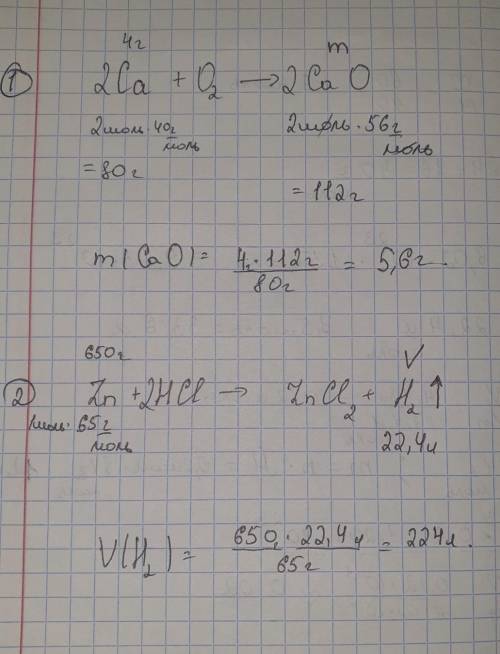 4г m
① 2Ca + O₂ → 2CaO
2моль · 40г/моль 2моль · 56г/моль
= 80г = 112г
m(CaO) = 4г · 112г / 80г = 5,6г.
650г V
② Zn + 2HCl → ZnCl₂ + H₂ ↑
1моль · 65г/моль 22,4л
V(H₂) = 650г · 22,4л / 65г = 224л.